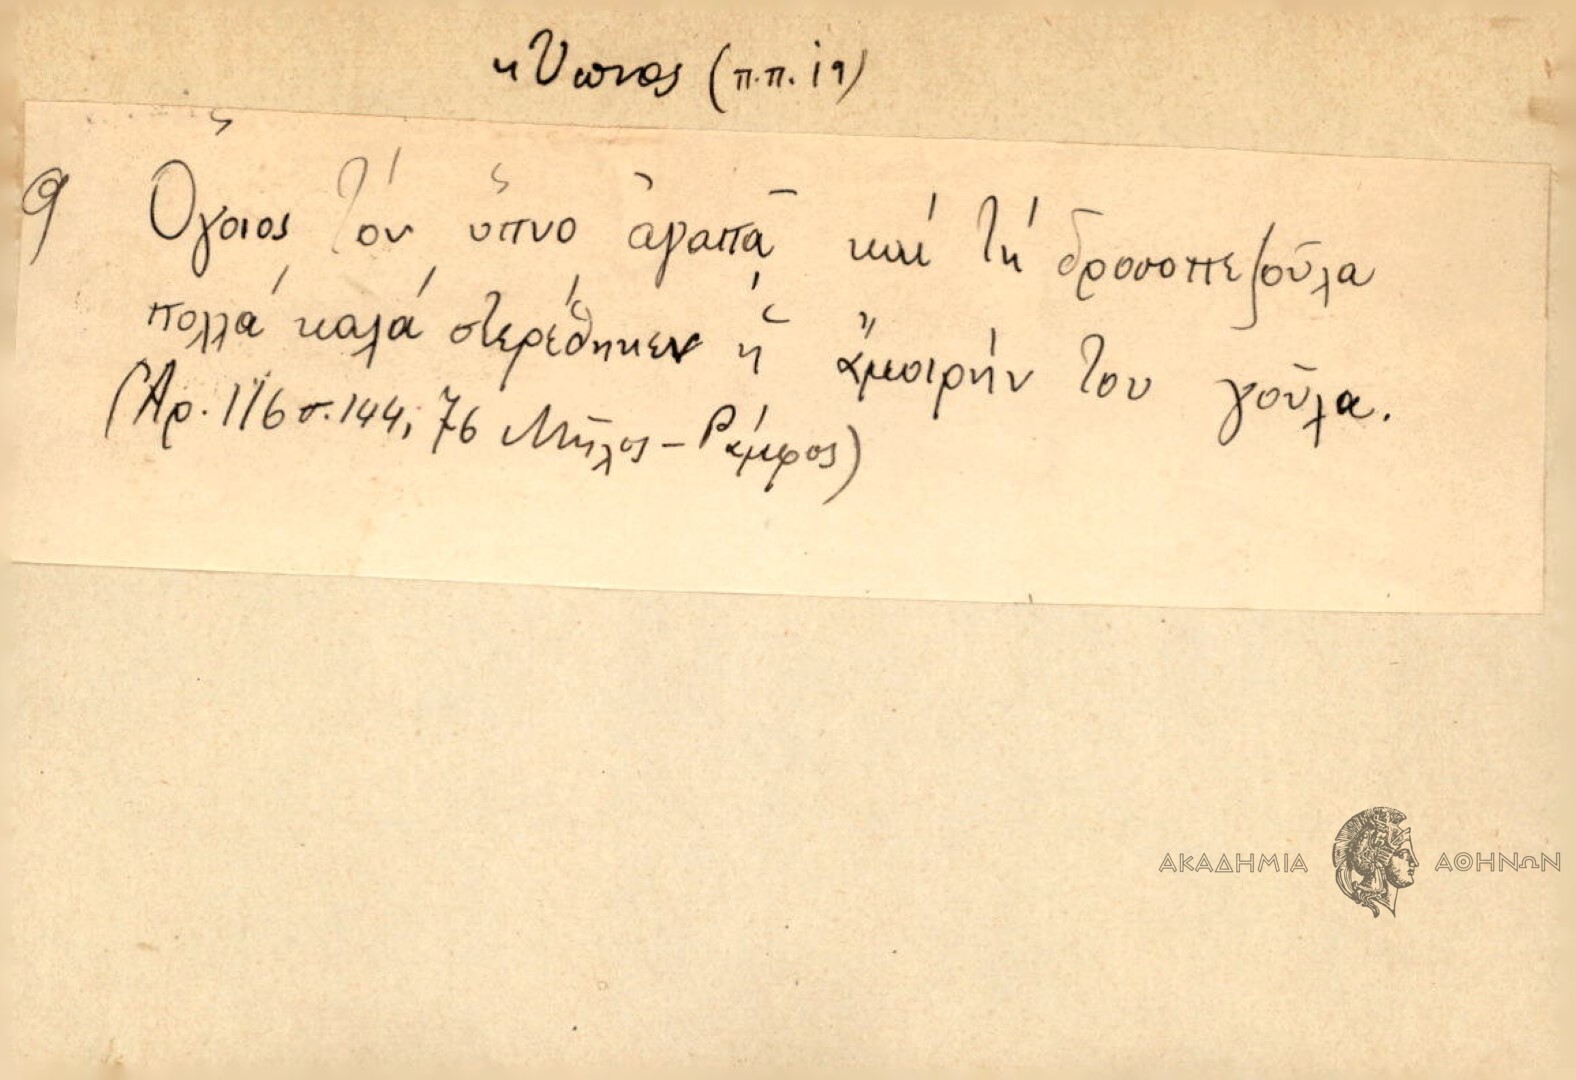 Ὕπνος (π.π. 19)
9 Ὅγοιος τόν ὕπνο ἀγαπᾶ καί τή δροσοπεζοῦλα
πολλά καλά στερέθηκεν ἡ ἄμοιρήν του γοῦλα.
(Ἀρ. 116 σ. 144, 76 Μῆλος - Ράμφος)
ΑΚΑΔΗΜΙΑ ΑΘΗΝΩΝ